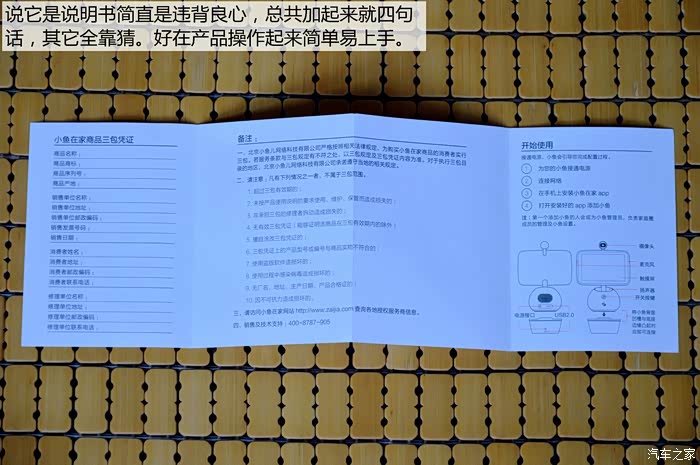 说它是说明书简直是违背良心，总共加起来就四句
话，其它全靠猜。好在产品操作起来简单易上手。
小鱼在家商品三包凭证
商品名称：
商品商标：
商品序列号：
商品产地：
销售单位名称：
销售单位地址：
销售单位邮政编码：
销售发票号码：
销售日期：
消费者姓名：
消费者地址：
消费者邮政编码：
消费者联系电话：
修理单位名称：
修理单位地址：
修理单位邮政编码：
修理单位联系电话：
备注：
一、北京小鱼儿网络科技有限公司严格按照相关法律规定，为购买小鱼在家商品的消费者实行
三包。若服务条款与三包规定有不符之处，以三包规定及三包凭证内容为准。对于执行三包目
录的地区，北京小鱼儿网络科技有限公司承诺遵守当地的相关规定。
二、请注意，凡有下列情况之一者，不属于三包范围。
1. 超过三包有效期的；
2. 未按产品使用说明的要求使用、维护、保管而造成损坏的；
3. 非承担三包的修理者拆动造成损坏的；
4. 无有效三包凭证（能够证明该商品在三包有效期内的除外）
5. 擅自涂改三包凭证的；
6. 三包凭证上的产品型号或编号与商品实物不符合的；
7. 使用盗版软件造成损坏的；
8. 使用过程中感染病毒造成损坏的；
9. 无厂名、地址、生产日期、产品合格证的；
10. 因不可抗力造成损坏的。
三、请访问小鱼在家网站 http://www.zaijia.com 查询各地授权服务商信息。
四、销售及技术支持：400-8787-905
开始使用
接通电源，小鱼会引导您完成配置过程。
1 为您的小鱼接通电源
2 连接网络
3 在手机上安装小鱼在家 app
4 打开安装好的 app 添加小鱼
注：第一个添加小鱼的人会成为小鱼管理员，负责家庭圈
成员的管理及小鱼设置。
摄像头
麦克风
触摸屏
扬声器
开关按键
电源接口 USB2.0
将小鱼背面
凹槽与底座
边缘凸起对
应即可连接
汽车之家